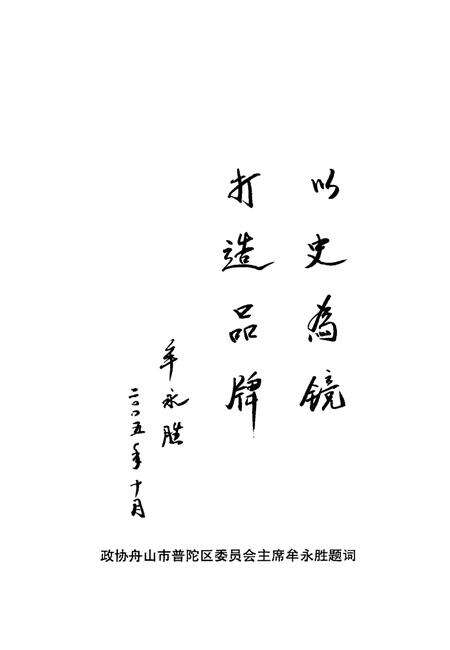 以史為镜
打造品牌
牟永胜
二〇〇五年十月
政协舟山市普陀区委员会主席牟永胜题词